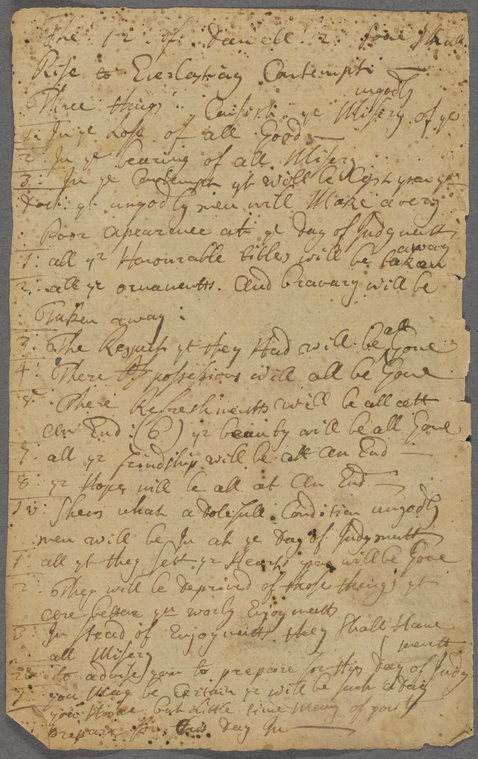 The 12 of Daniell 2 some shall
Rise to Everlasting Contempt
Three things Consists ye Misery of ye ungodly
1: In ye Lose of all Good
2 In ye bearing of all Misery
3: In ye Contempt yt will be Cast upon ym
Doct: yt ungodly men will Make a very
Poor apearence at ye Day of Judgment
1: all yr Honourable titles will be taken away
2: all yr ornaments. And bravary will be
Taken away:
3: The Respect yt they Had will be all Gone
4 There possesions will all be Gone
5 There Refreshments will be all att
an End (6) yr beauty will be all Gone
7 all yr frindship will be att An End
8: yr Hopes will be all at An End
Shews what a Dolefull Condition ungodly
men will be In at ye Day of Judgment
1: all yt they Sett yr Hearts upon will be Gone
2 They will be Deprived of those things yt
are better yn worly Enjoyments
3 In stead of Enjoyments they Shall Have
all Misery
to advise you to prepare for this Day of Judgment
1 you May be Certain yr will be such a day
you Have but little time Many of you to
prepare for this Day In